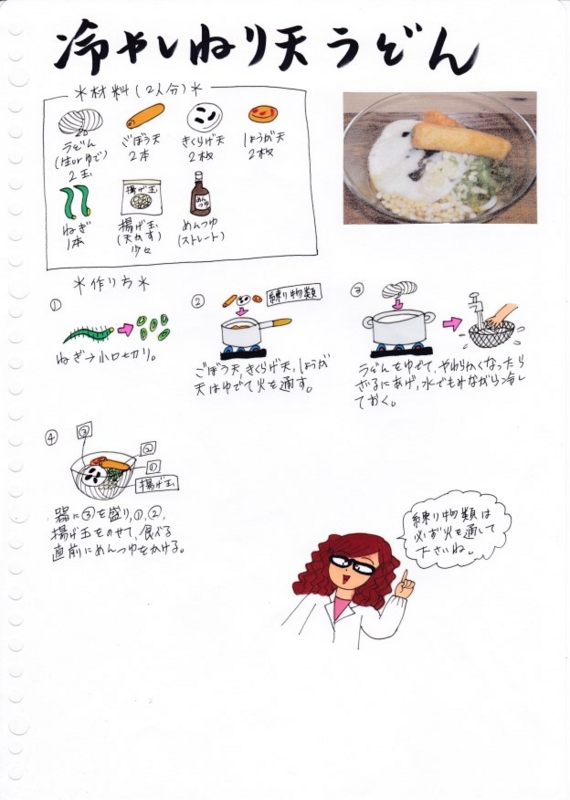 冷やしねり天うどん
*材料(2人分)*
うどん
(生orゆで)
2玉
ごぼう天
2本
きくらげ天
2枚
しょうが天
2枚
ねぎ
1本
揚げ玉
揚げ玉
(天かす)
少々
めんつゆ
めんつゆ
(ストレート)
*作り方*
①
ねぎ→小口切り。
②
練り物類
ごぼう天、きくらげ天、しょうが
天はゆでて火を通す。
③
うどんをゆでて、やわらかくなったら
ざるにあげ、水でもみながら冷し
ておく。
④
③
②
①
揚げ玉
器に③を盛り、①、②、
揚げ玉をのせて、食べる
直前にめんつゆをかける。
練り物類は
必ず火を通して
下さいね。